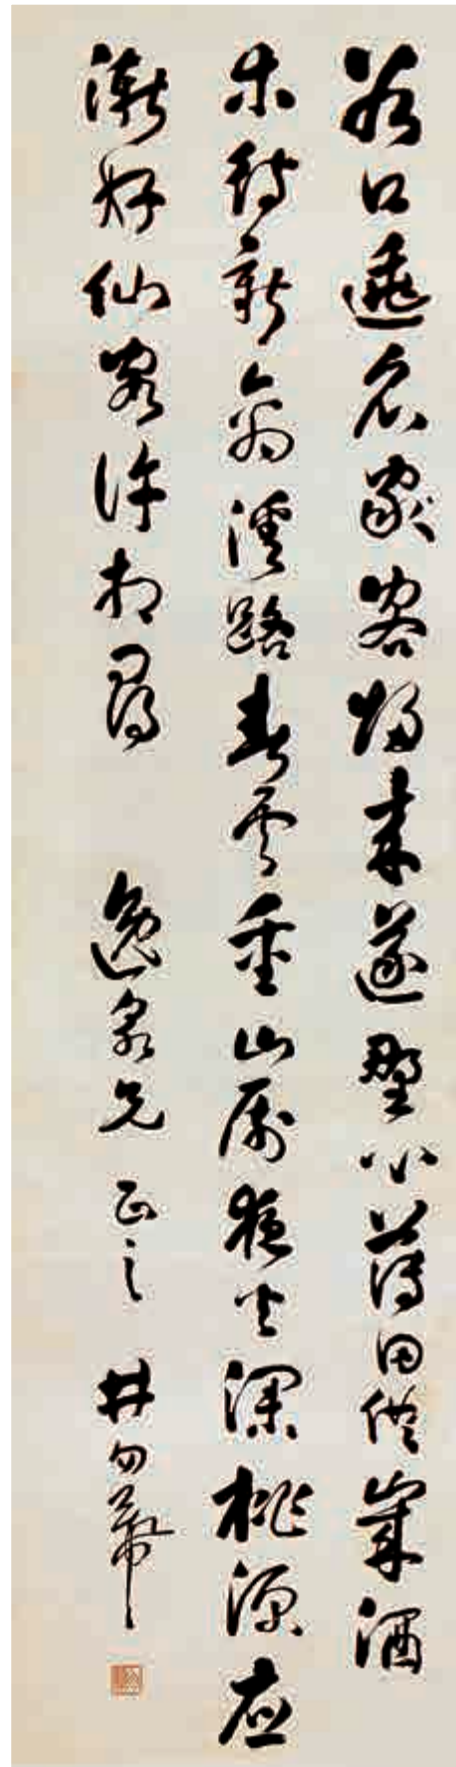 谷口逃名家客歸来遂野心薄田供歲酒
木待新禽溪路春雲重山厨夜火深桃源应
漸好仙客許相尋 逸泉兄 正之 井勿幕